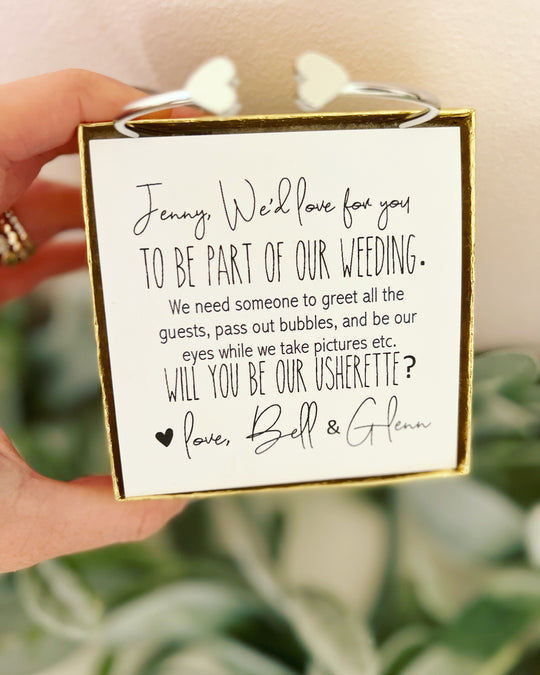 Jenny, We'd love for you
TO BE PART OF OUR WEEDING.
We need someone to greet all the
guests, pass out bubbles, and be our
eyes while we take pictures etc.
WILL YOU BE OUR USHERETTE?
love, Bell & Glenn